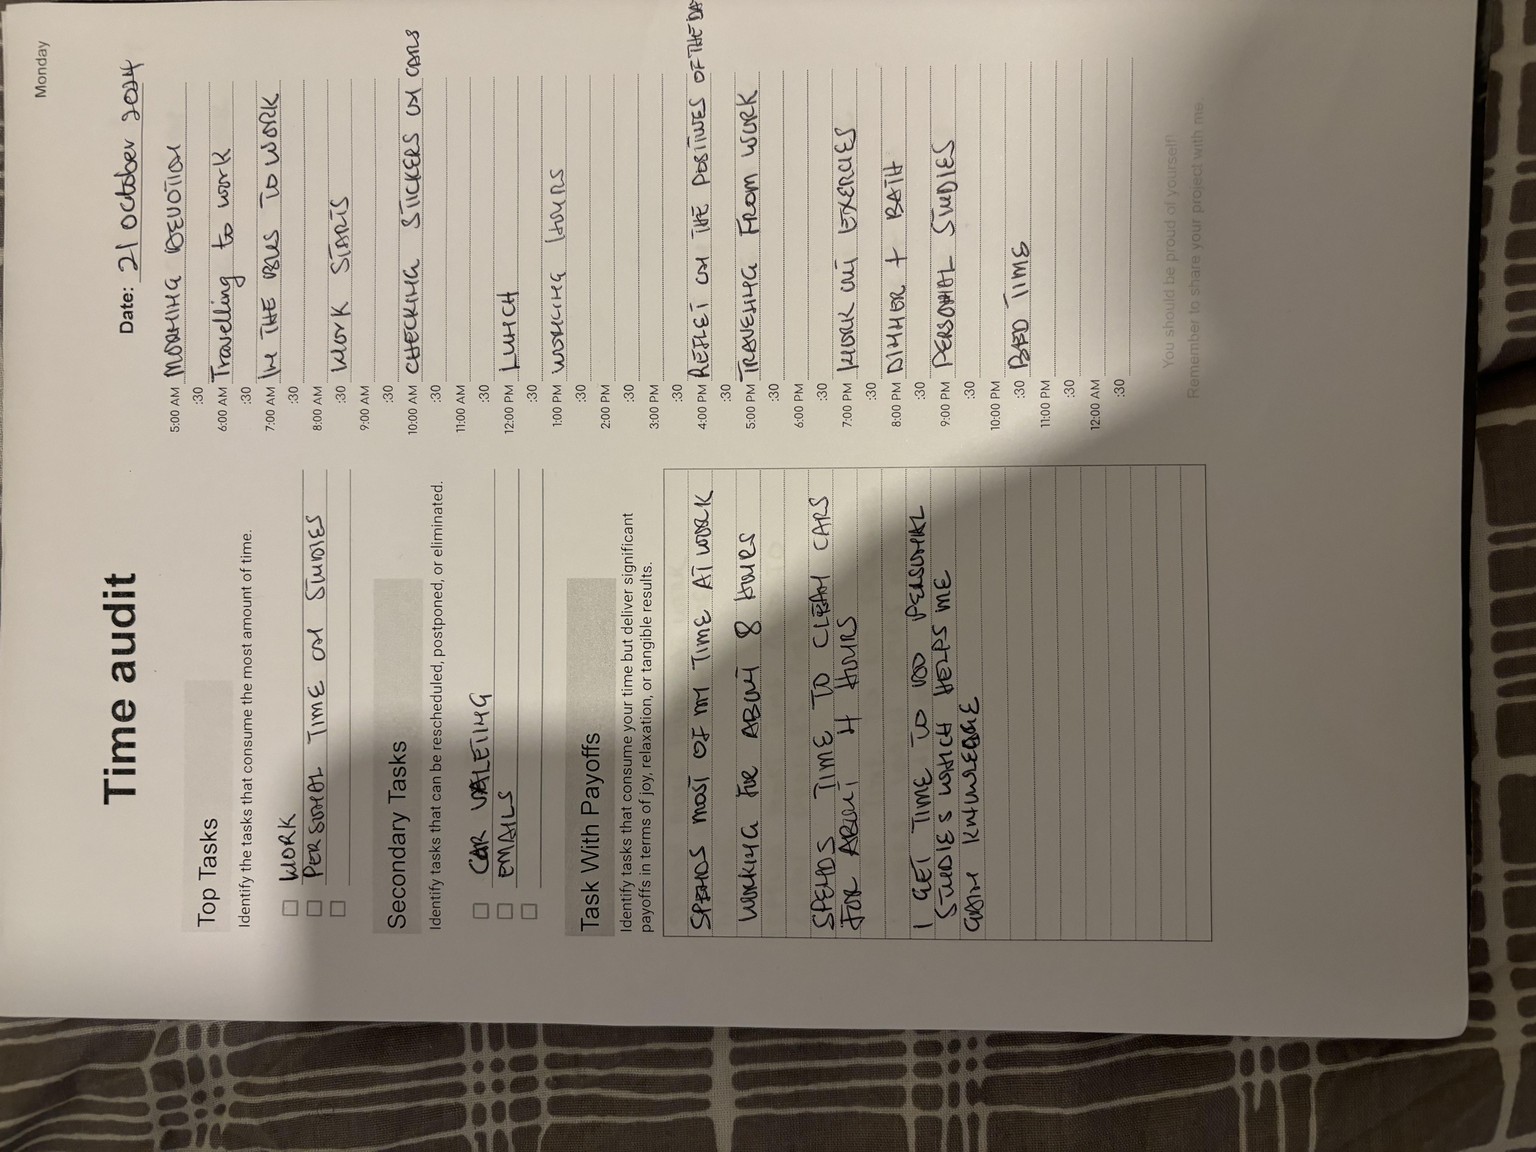 Monday
Time audit
Date: 21 October 2024
Top Tasks
Identify the tasks that consume the most amount of time.
WORK
PERSONAL TIME ON STUDIES
Secondary Tasks
Identify tasks that can be rescheduled, postponed, or eliminated.
CAR VALETING
EMAILS
Task With Payoffs
Identify tasks that consume your time but deliver significant
payoffs in terms of joy, relaxation, or tangible results.
SPENDS MOST OF MY TIME AT WORK
WORKING FOR ABOUT 8 HOURS
SPENDS TIME TO CLEAN CARS
FOR ABOUT 4 HOURS
I GET TIME TO DO PERSONAL
STUDIES WHICH HELPS ME
GAIN KNOWLEDGE
5:00 AM MORNING DEVOTION
:30
6:00 AM Travelling to work
:30
7:00 AM IN THE BUS TO WORK
:30
8:00 AM
:30 WORK STARTS
9:00 AM
:30
10:00 AM CHECKING STICKERS ON CARS
:30
11:00 AM
:30
12:00 PM LUNCH
:30
1:00 PM WORKING HOURS
:30
2:00 PM
:30
3:00 PM
:30
4:00 PM REFLET ON THE POSITIVES OF THE DA
:30
5:00 PM TRAVELING FROM WORK
:30
6:00 PM
:30
7:00 PM WORK OUT EXERCIES
:30
8:00 PM DINNER + BATH
:30
9:00 PM PERSONAL STUDIES
:30
10:00 PM
:30 BED TIME
11:00 PM
:30
12:00 AM
:30
You should be proud of yourself!
Remember to share your project with me